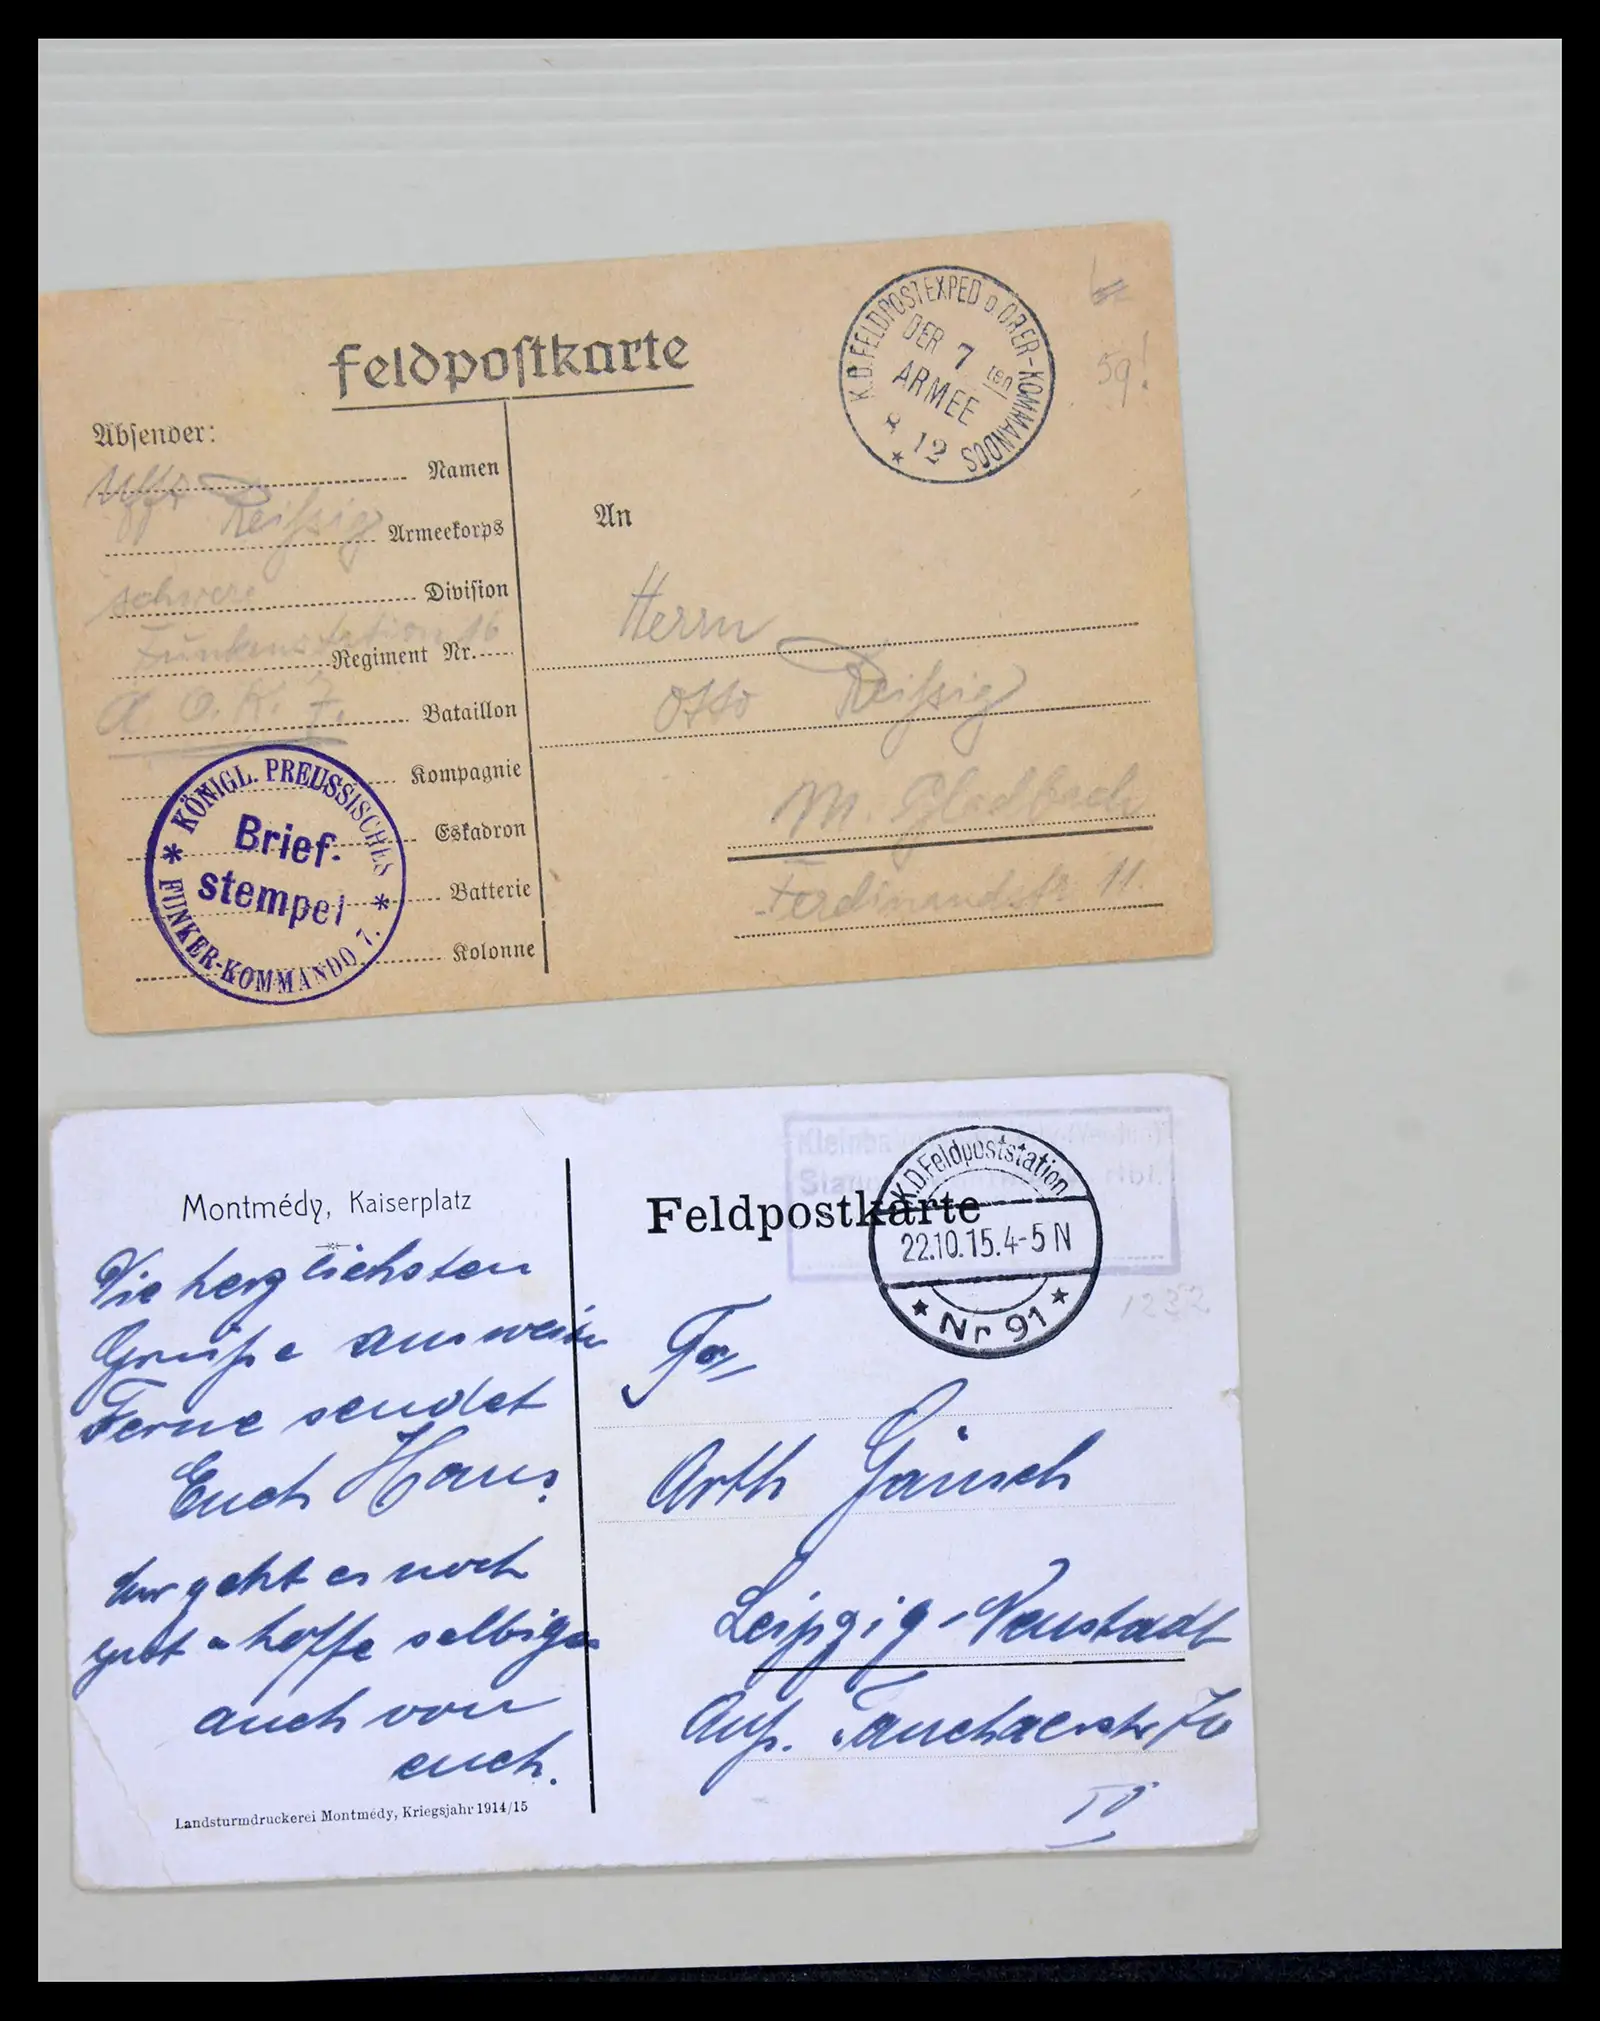 Feldpostkarte
K.D.FELDPOSTEXPED D.OBER-KOMMANDOS
DER 7 ten
ARMEE
8 12
59!
Absender:
Uffz Namen
Reißig Armeekorps
schwere Division
Funkenstation 16
Regiment Nr.
A. O. K. 7. Bataillon
Kompagnie
Eskadron
Batterie
Kolonne
KÖNIGL. PREUSSISCHES
Brief-
stempel
FUNKER-KOMMANDO 7.
An
Herrn
Otto Reißig
M. Gladbach
Ferdinandstr 11.
Montmédy, Kaiserplatz
Die herzlichsten
Grüße aus weiter
Ferne sendet
Euch Hans.
Mir geht es noch
gut u hoffe selbiges
auch von
euch.
Landsturmdruckerei Montmédy, Kriegsjahr 1914/15
Feldpostkarte
K.D.Feldpoststation
22.10.15.4-5 N
Nr 91
1232
Fa
Arth Gänsch
Leipzig-Neustadt
Auß. Tauchaerstr